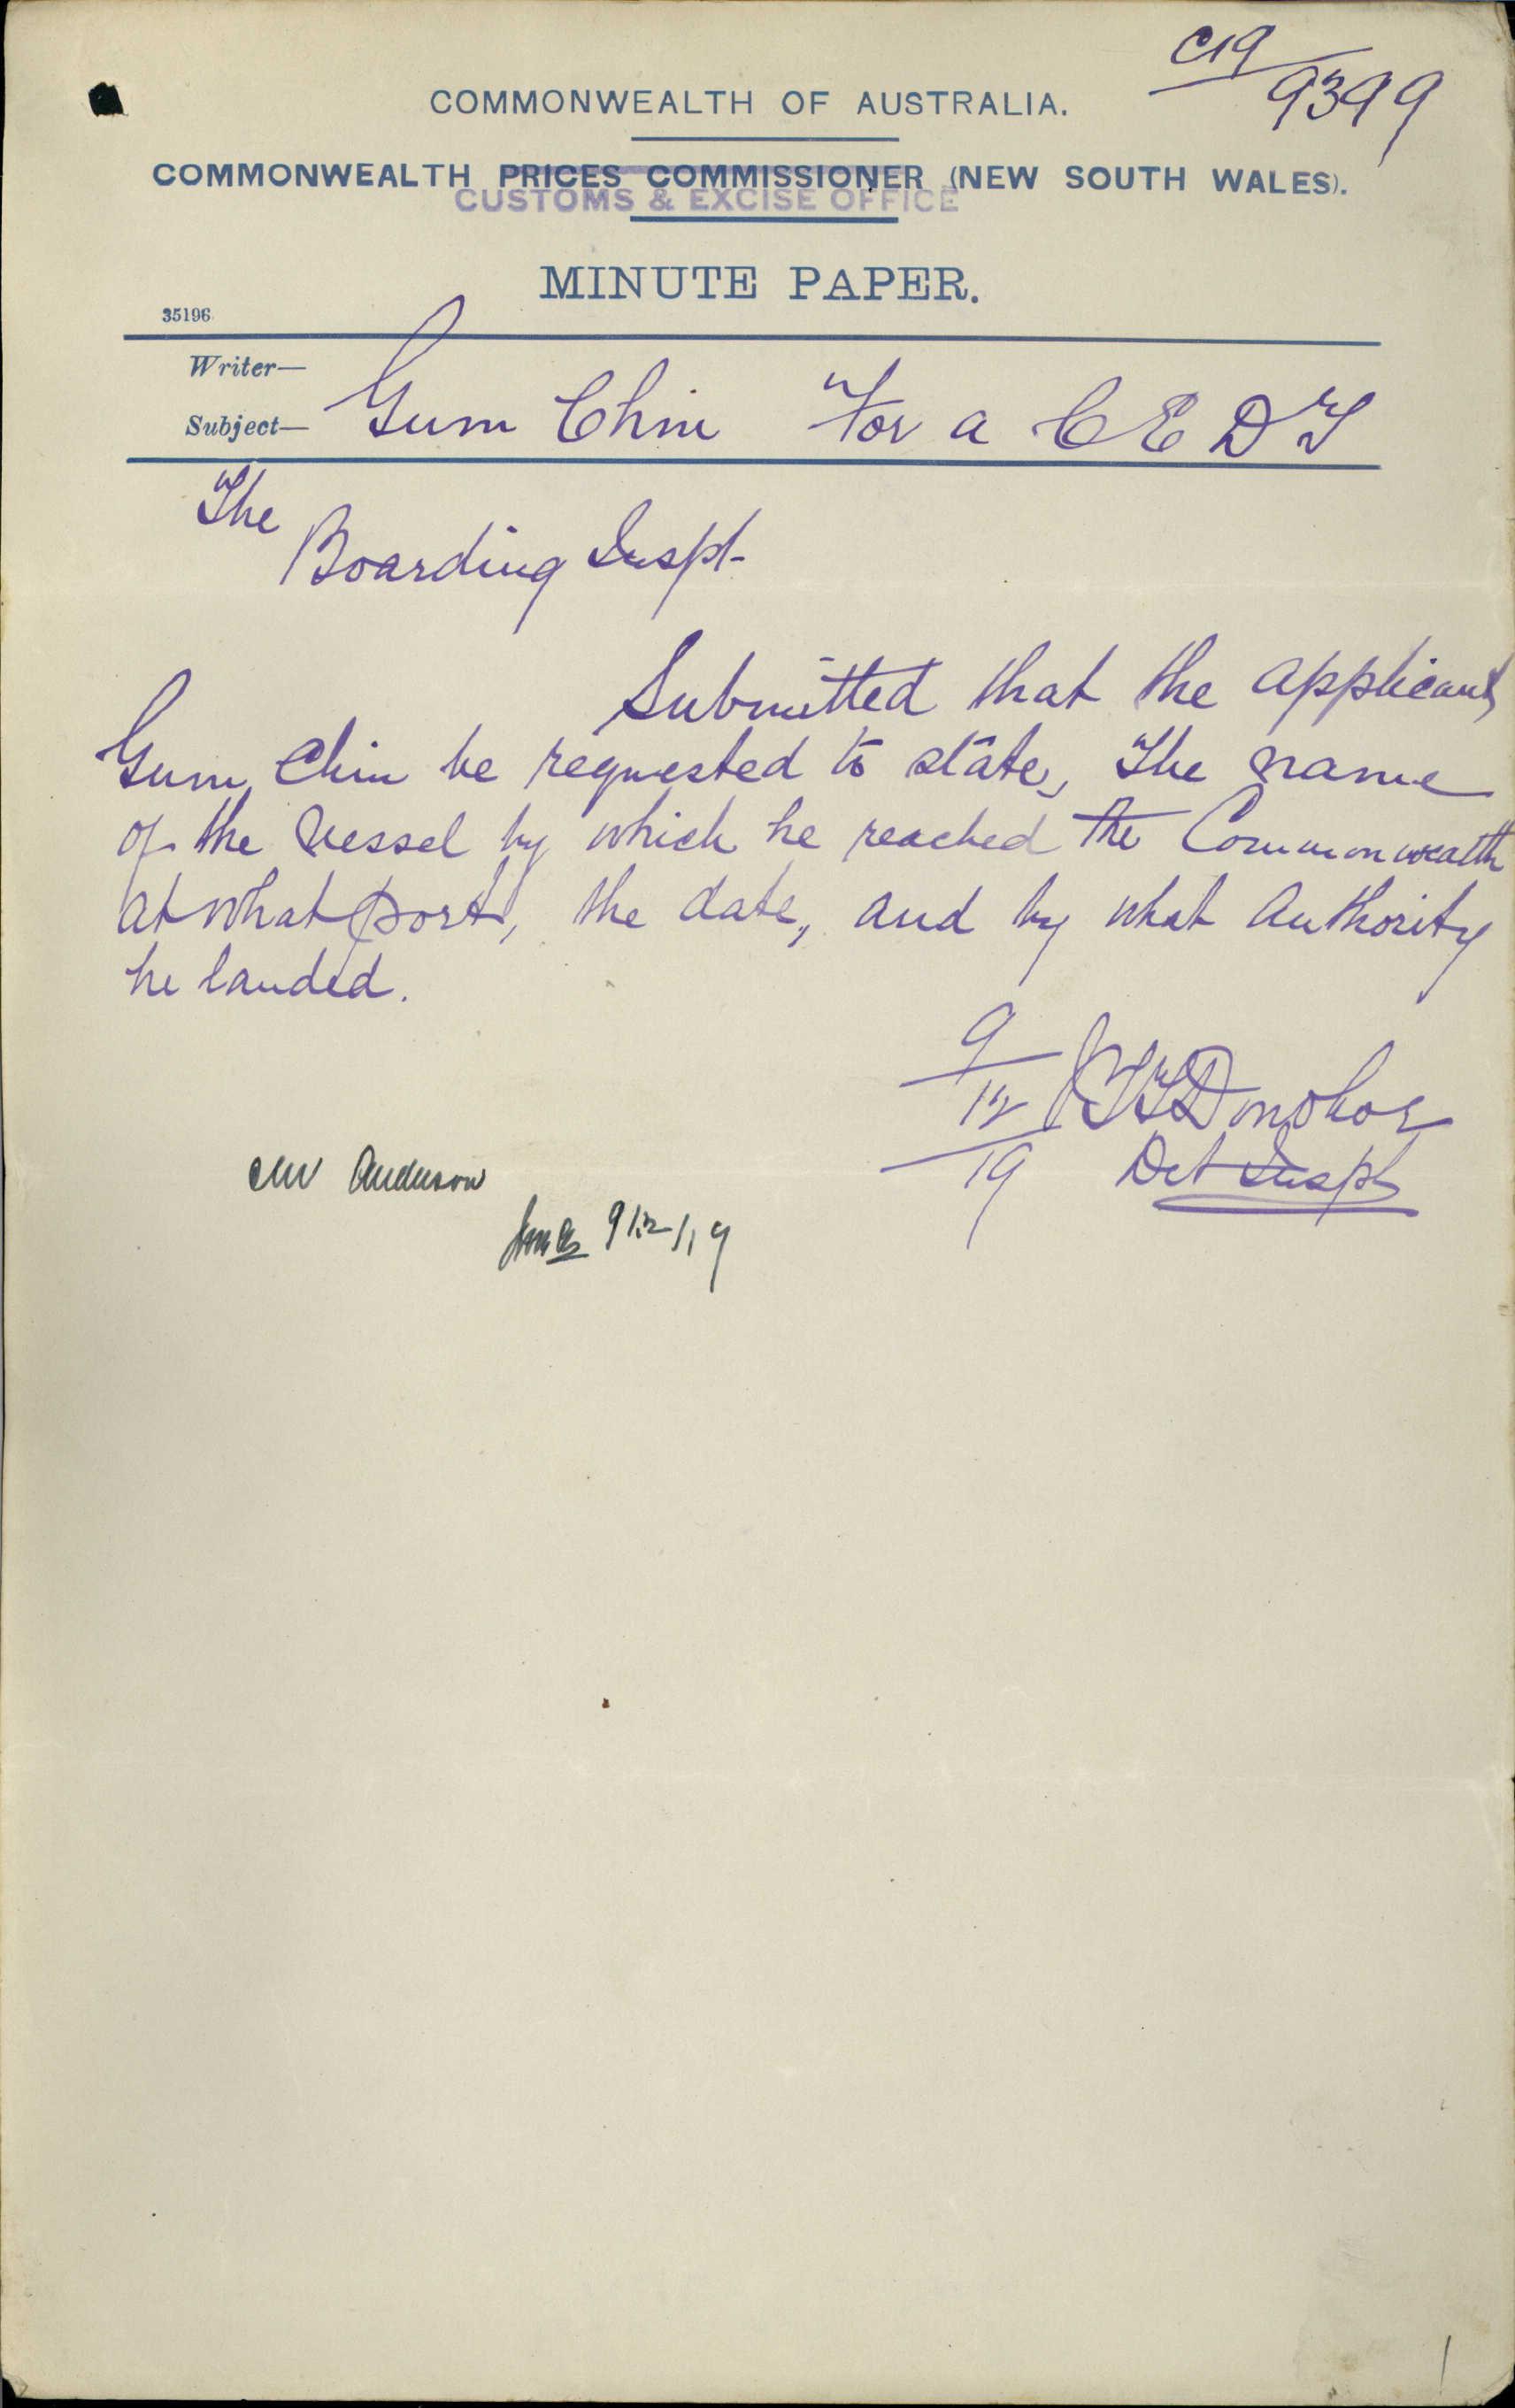 C19
9399
COMMONWEALTH OF AUSTRALIA.
COMMONWEALTH PRICES COMMISSIONER (NEW SOUTH WALES).
CUSTOMS & EXCISE OFFICE
MINUTE PAPER.
35196
Writer—
Subject— Gum Chin For a C E D T
The
Boarding Inspt-
Submitted that the applicant
Gum Chin be requested to state, The name
of the vessel by which he reached the Commonwealth
at what port, the date, and by what Authority
he landed.
9
12 Donohoe
19 Det Inspt
Anderson
9/12/19